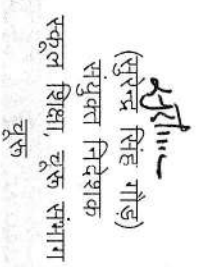 (सुरेन्द्र सिंह गौड़)
संयुक्त निदेशक
स्कूल शिक्षा, चूरू संभाग
चूरू